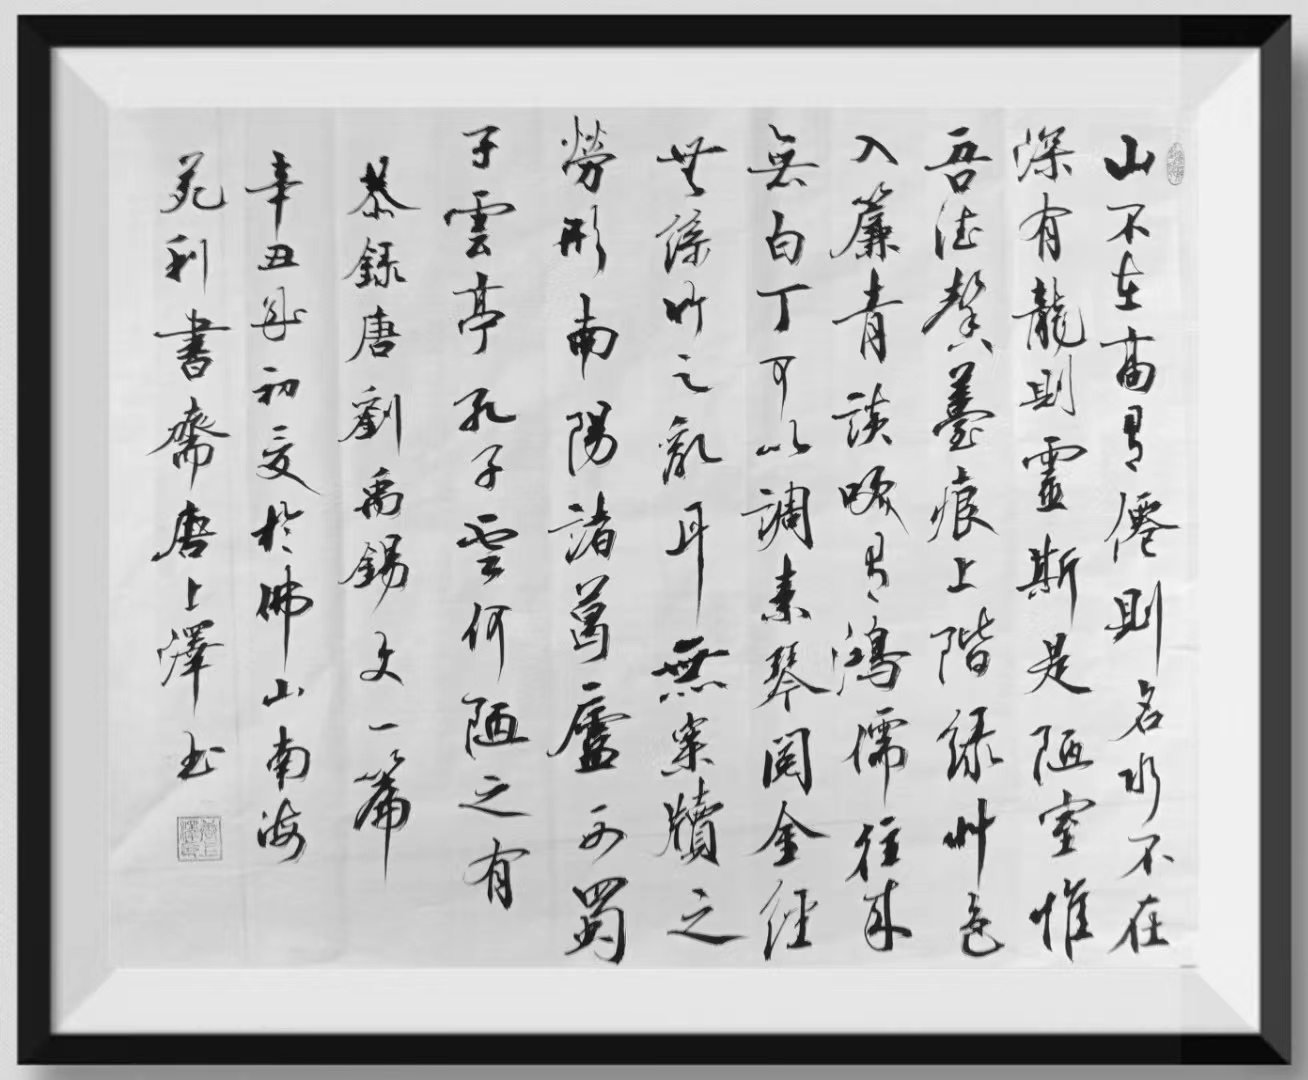 山不在高有僊則名水不在
深有龍則靈斯是陋室惟
吾德馨薹痕上階綠艸色
入簾青談咲有鴻儒往來
無白丁可以調素琴閱金經
無絲竹之亂耳無案牘之
勞形南陽諸葛廬西蜀
子雲亭孔子雲何陋之有
恭錄唐劉禹錫文一篇
辛丑年初夏於佛山南海
苑利書齋唐上澤書